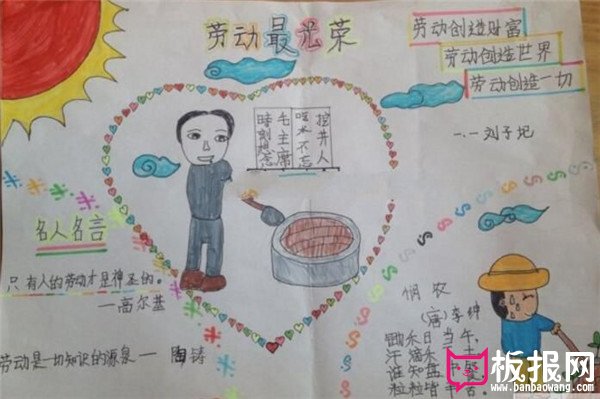 劳动最光荣
劳动创造财富
劳动创造世界
劳动创造一切
一.一刘子
时刻想念
毛主席
吃水不忘
挖井人
名人名言
只有人的劳动才是神圣的。
—高尔基
劳动是一切知识的源泉— 陶铸
悯农
(唐)李绅
锄禾日当午,
汗滴禾
谁知盘中
粒粒皆辛苦。
板报网
www.banbaowang.com